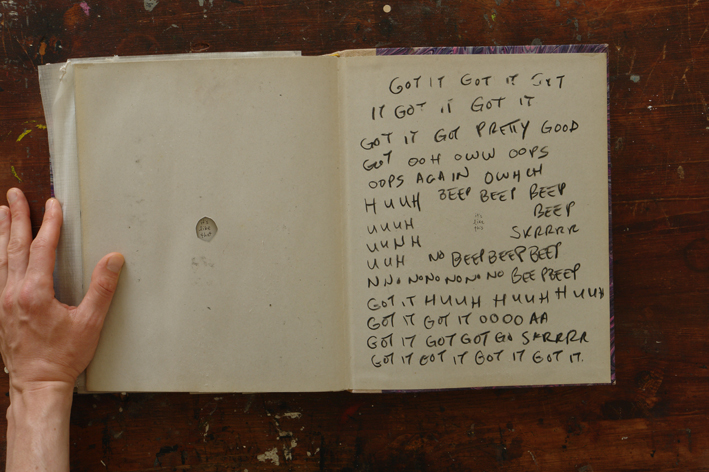 GOT IT GOT IT GET
IT GOT IT GOT IT
GOT IT GOT PRETTY GOOD
GOT OOH OWW OOPS
OOPS AGAIN OWHCH
HUUH BEEP BEEP BEEP
UUUH BEEP
UUNH SKRRRR
UUH NO BEEP BEEP BEEP
NNO NO NO NO NO NO BEEP BEEP
GOT IT HUUH HUUH HUUH
GOT IT GOT IT OOOO AA
GOT IT GOT GOT GO SKRRRR
GOT IT GOT IT GOT IT GOT IT.